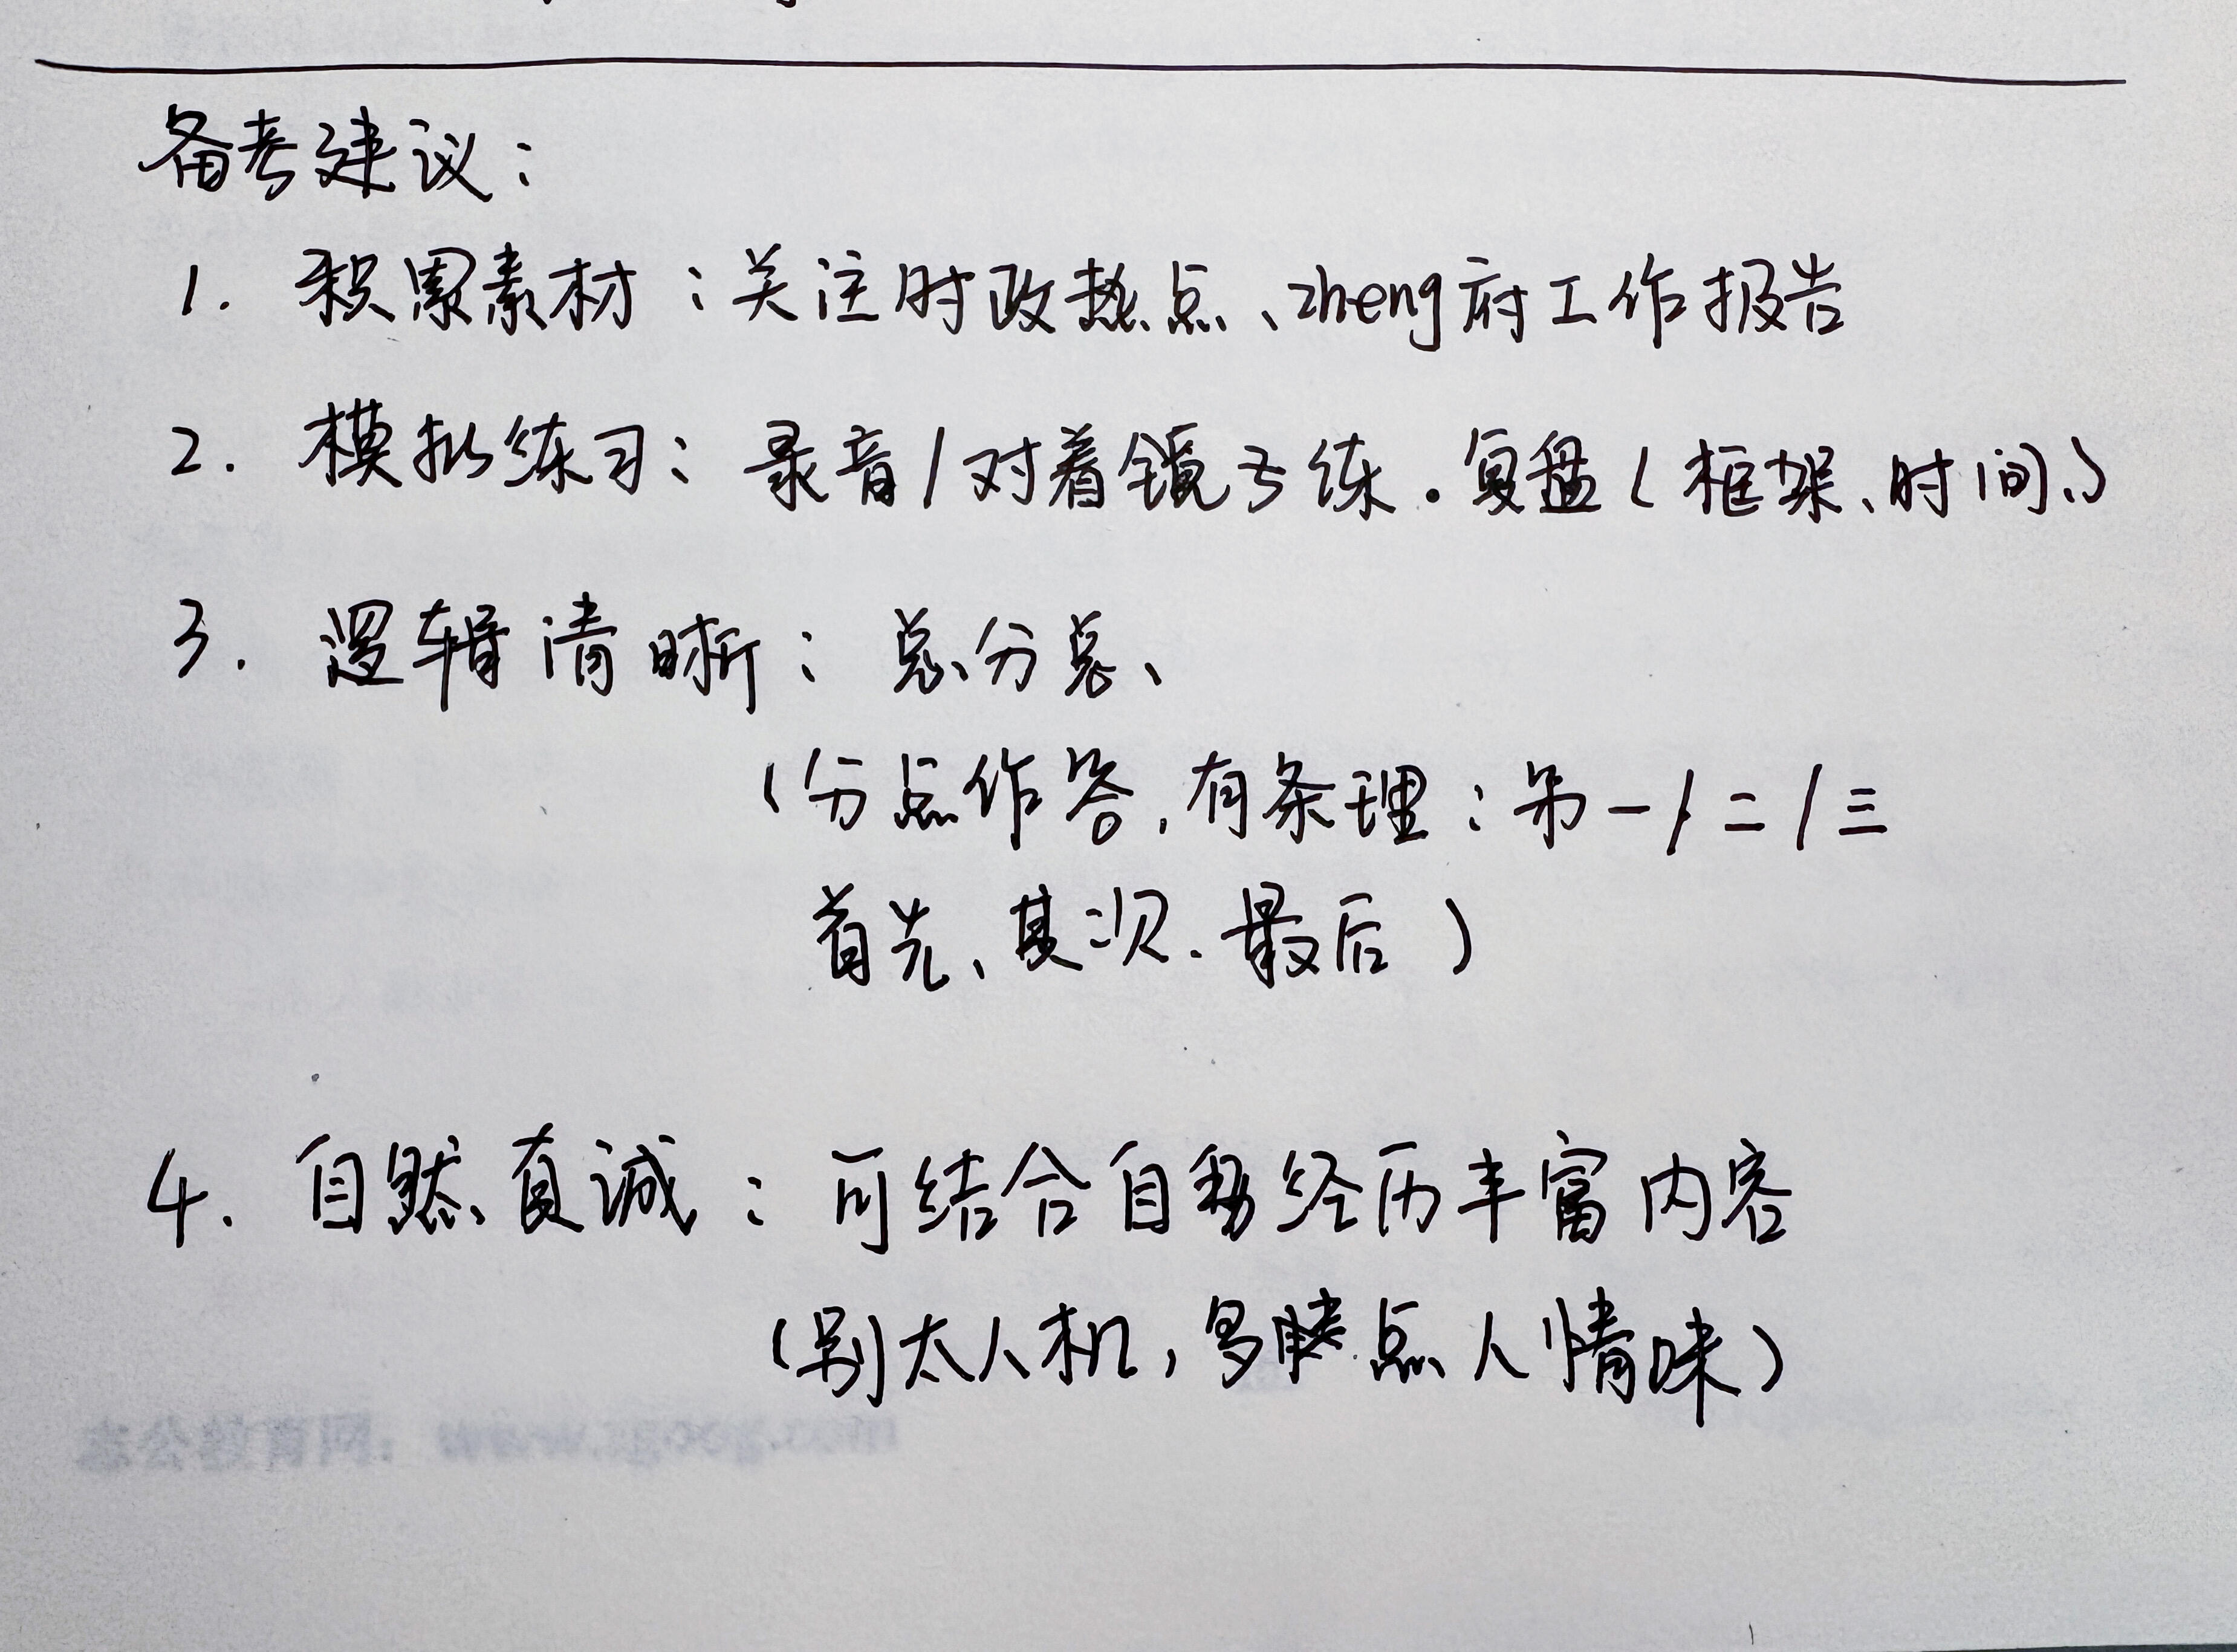 备考建议：
1. 积累素材：关注时政热点、zheng府工作报告
2. 模拟练习：录音/对着镜子练.复盘(框架、时间、)
3. 逻辑清晰：总分总、
(分点作答,有条理：第一/二/三
首先、其次.最后)
4. 自然真诚：可结合自身经历丰富内容
(别太人机,多脿点人情味)
志公教育网：